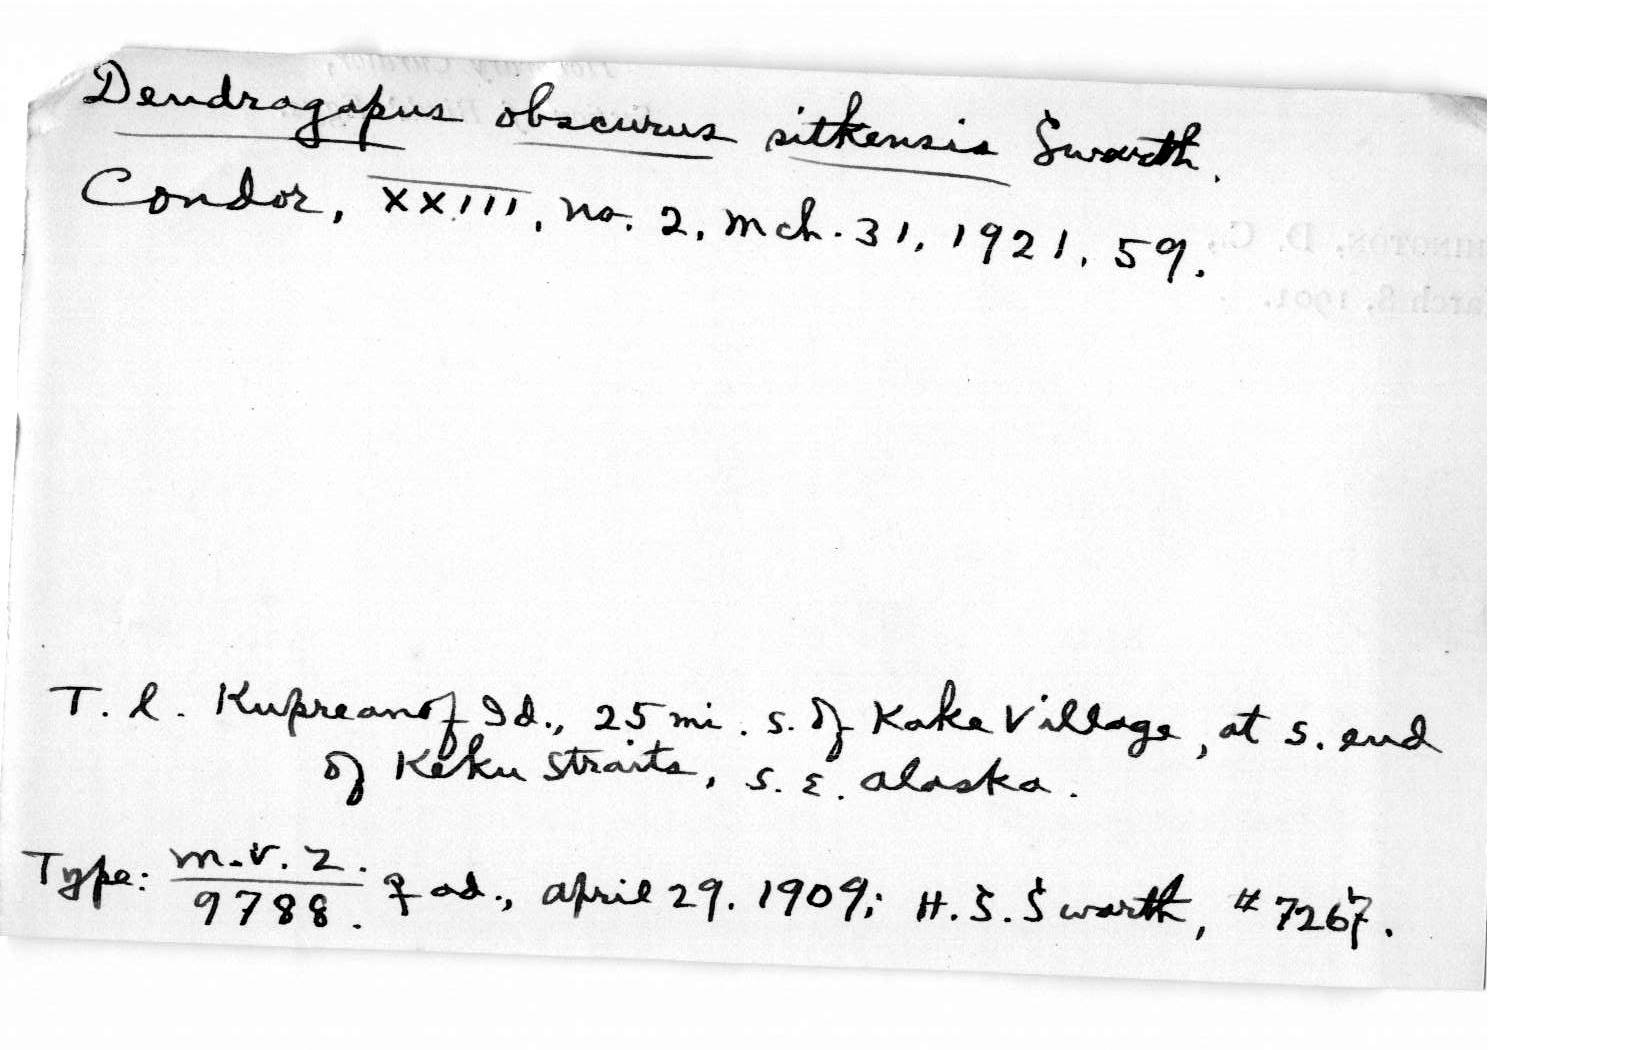 Dendragapus obscurus sitkensis Swarth.
Condor, XXIII, no. 2, Mch. 31, 1921, 59.
T. l. Kupreanof Id., 25 mi. S. of Kake Village, at S. end
of Keku Straits, S. E. Alaska.
Type: M.V.Z. / 9788. ♀ ad., April 29. 1909; H. S. Swarth, # 7267.